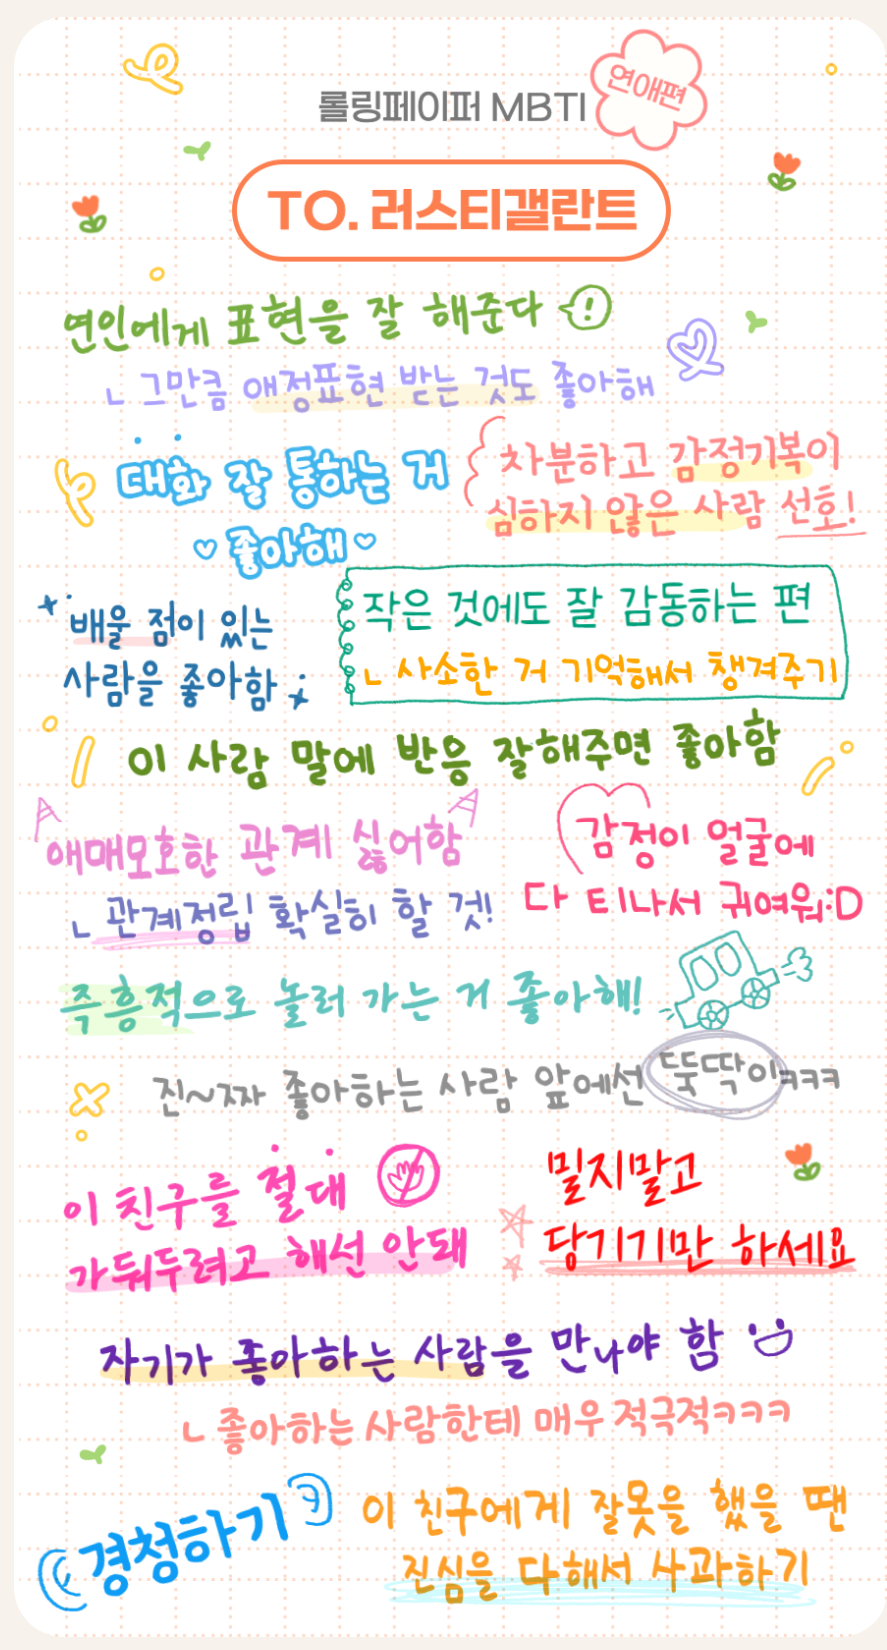 롤링페이퍼 MBTI
연애편
TO. 러스티갤란트
연인에게 표현을 잘 해준다 !
ㄴ 그만큼 애정표현 받는 것도 좋아해
대화 잘 통하는 거
♡ 좋아해 ♡
차분하고 감정기복이
심하지 않은 사람 선호!
배울 점이 있는
사람을 좋아함
작은 것에도 잘 감동하는 편
ㄴ 사소한 거 기억해서 챙겨주기
이 사람 말에 반응 잘해주면 좋아함
애매모호한 관계 싫어함
ㄴ 관계정립 확실히 할 것!
감정이 얼굴에
다 티나서 귀여워:D
즉흥적으로 놀러 가는 거 좋아해!
진~짜 좋아하는 사람 앞에선 뚝딱이ㅋㅋㅋ
이 친구를 절대
가둬두려고 해선 안돼
밀지말고
당기기만 하세요
자기가 좋아하는 사람을 만나야 함
ㄴ 좋아하는 사람한테 매우 적극적ㅋㅋㅋ
경청하기
이 친구에게 잘못을 했을 땐
진심을 다해서 사과하기